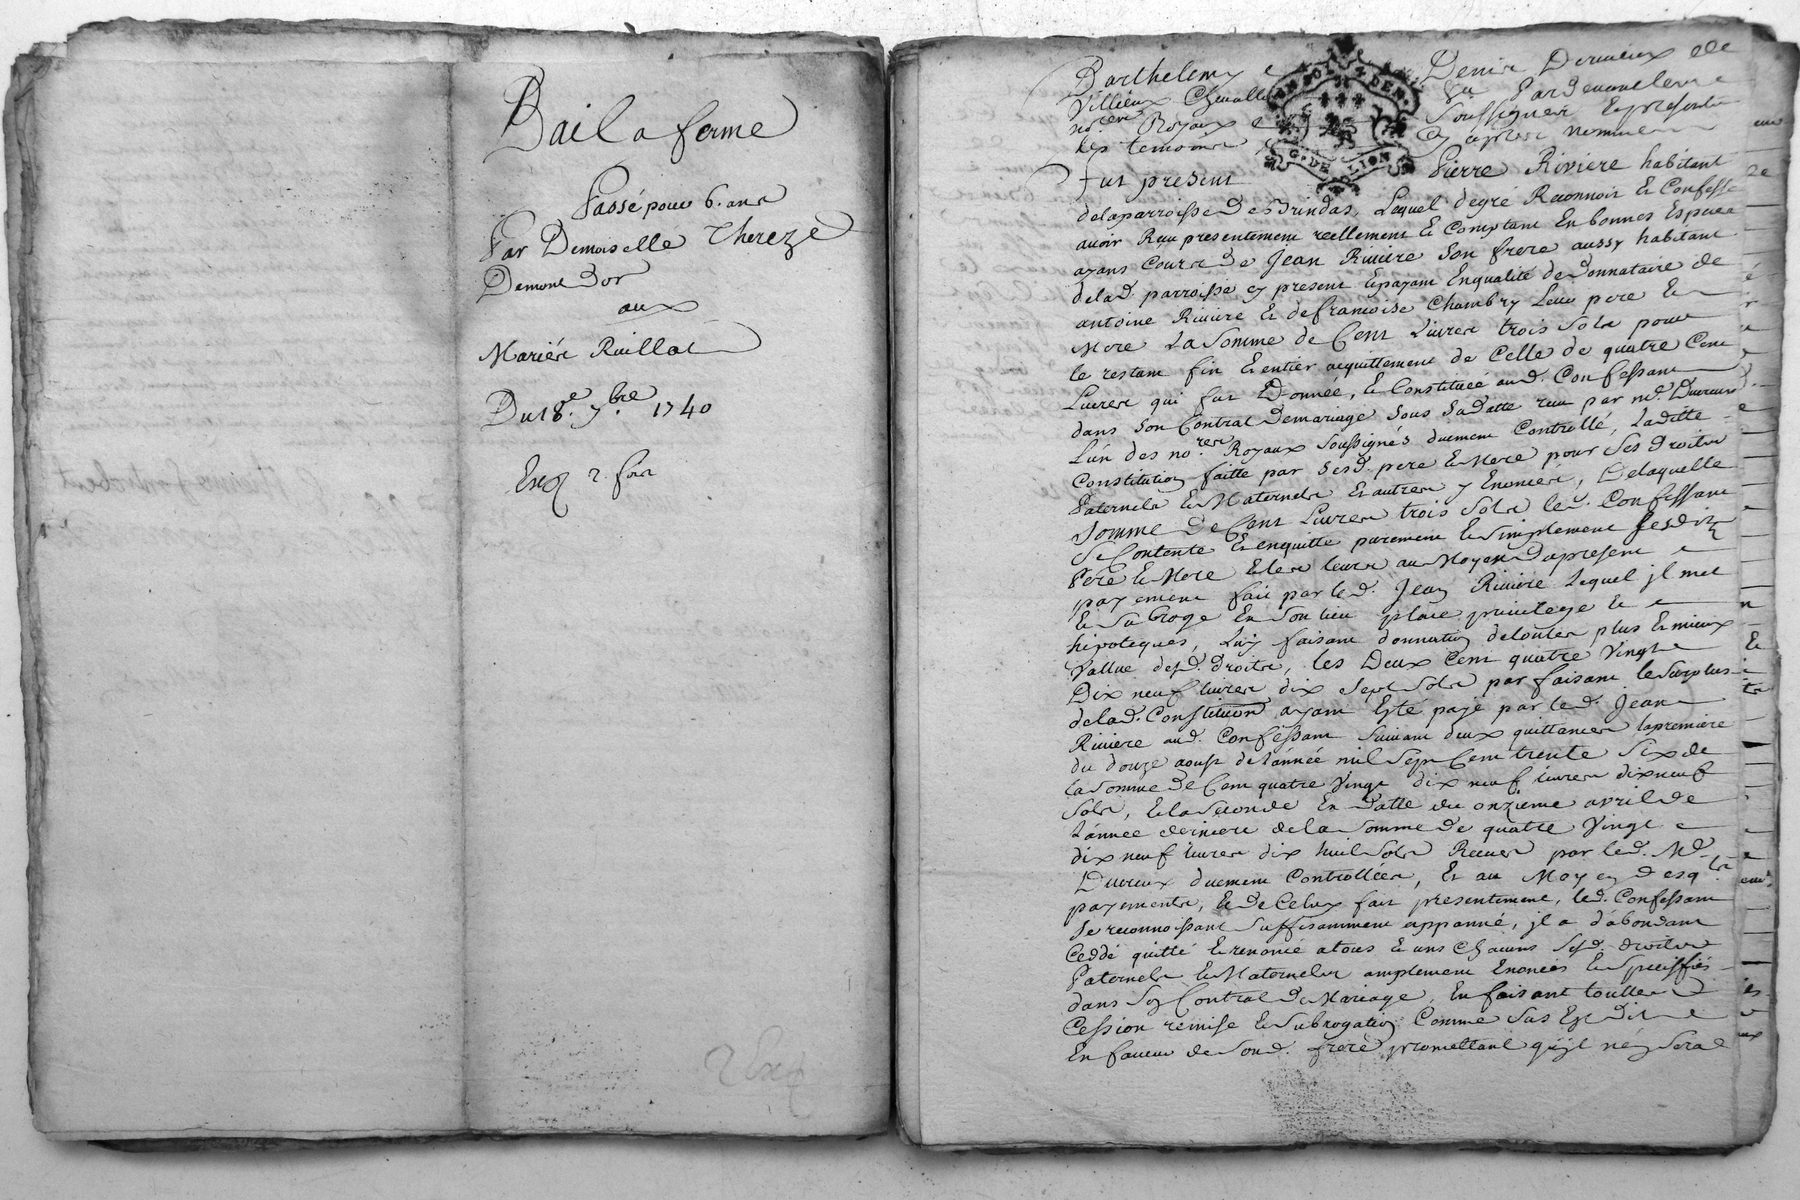 Bail a ferme
Passé pour 6. ans
Par Demoiselle Thereze
Demont Dor
aux
Mariés Ruillat
Du 18e 7bre 1740
Exp 2. fois
2 Exp
EN SOL 4 DEN.
G. DE LION
Barthelemy Denis Dervieux de
Villieux Chevallier Par devant les
nores Royaux soussignes Et presents
les temoins cy apres nommes
fut present Pierre Riviere habitant
de la parroisse de Brindas, Lequel de gré Reconnoit Et Confesse
avoir Reçu presentement reellement Et Comptant En bonnes Especes
ayans Cours de Jean Riviere Son frere aussy habitant
de lad. parroisse cy present Et payant En qualité de donnataire de
antoine Riviere Et de francoise Chambry Leur pere Et
Mere La Somme de Cent Livres trois Sols pour
le restant fin Et entier acquittement de Celle de quatre Cent
Livres qui fut Donnée, Et Constituée aud. Confessant
dans Son Contrat de mariage Sous Sa datte reçu par me. Durieux
L'un des nores Royaux Soussignés duement Controllé, Laditte
Constitution faitte par Sesd. pere Et Mere pour Ses droits
Paternels Et Maternels Et autres y Enoncés, De laquelle
Somme de Cent Livres trois Sols led. Confessant
Se Contente Et en quitte purement Et Simplement Sesdits
Pere Et Mere Et les leurs au Moyen d'a present
payement fait par led. Jean Riviere Lequel jl met
Et Subroge En Son lieu place privilege Et
hipoteques, Luy faisant donnation de toutes plus Et mieux
Vallue desd. droits, les Deux Cent quatre Vingt
Dix neuf livres dix Sept Sols parfaisant le Surplus
de lad. Constitution ayant Esté payé par led. Jean
Riviere aud. Confessant Suivant deux quittances la premiere
du douze aoust de l'année mil Sept Cent trente Six de
la Somme de Cent quatre Vingt dix neuf livres dix neuf
Sols, Et la Seconde En datte du onzieme avril de
L'année derniere de la Somme de quatre Vingt
dix neuf livres dix huit Sols Recues par led. Me
Durieux duement Controllées, Et au Moyen desqls
payements, Et de Celuy fait presentement, led. Confessant
Se reconnoissant Suffisamment appanné, jl a d'abondant
Ceddé quitté Et renoncé a tous Et uns Chacuns Sesd. droits
Paternels Et Maternels amplement Enoncés Et Speciffiés
dans Son Contrat de Mariage, En faisant touttes
Cession remise Et Subrogation Comme Sus Est dit
En faveur de Sond. frere promettant qu'jl n'en Sera